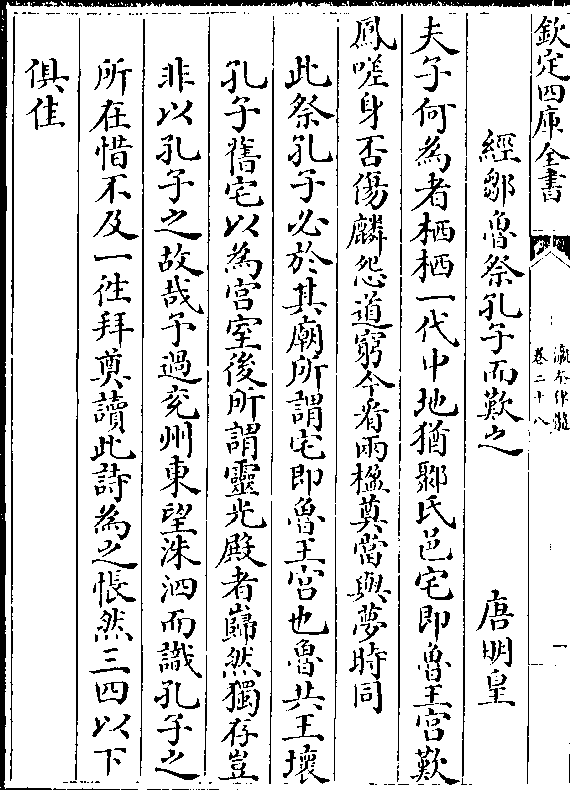 欽定四庫全書
瀛奎律髓
卷二十八
一
經鄒魯祭孔子而歎之　唐明皇
夫子何為者栖栖一代中地猶鄹氏邑宅即魯王宫歎
鳳嗟身否傷麟怨道窮今看兩楹奠當與夢時同
此祭孔子必於其廟所謂宅即魯王宫也魯共王壞
孔子舊宅以為宫室後所謂靈光殿者巋然獨存豈
非以孔子之故哉予過兖州東望洙泗而識孔子之
所在惜不及一徃拜奠讀此詩為之悵然三四以下
俱佳